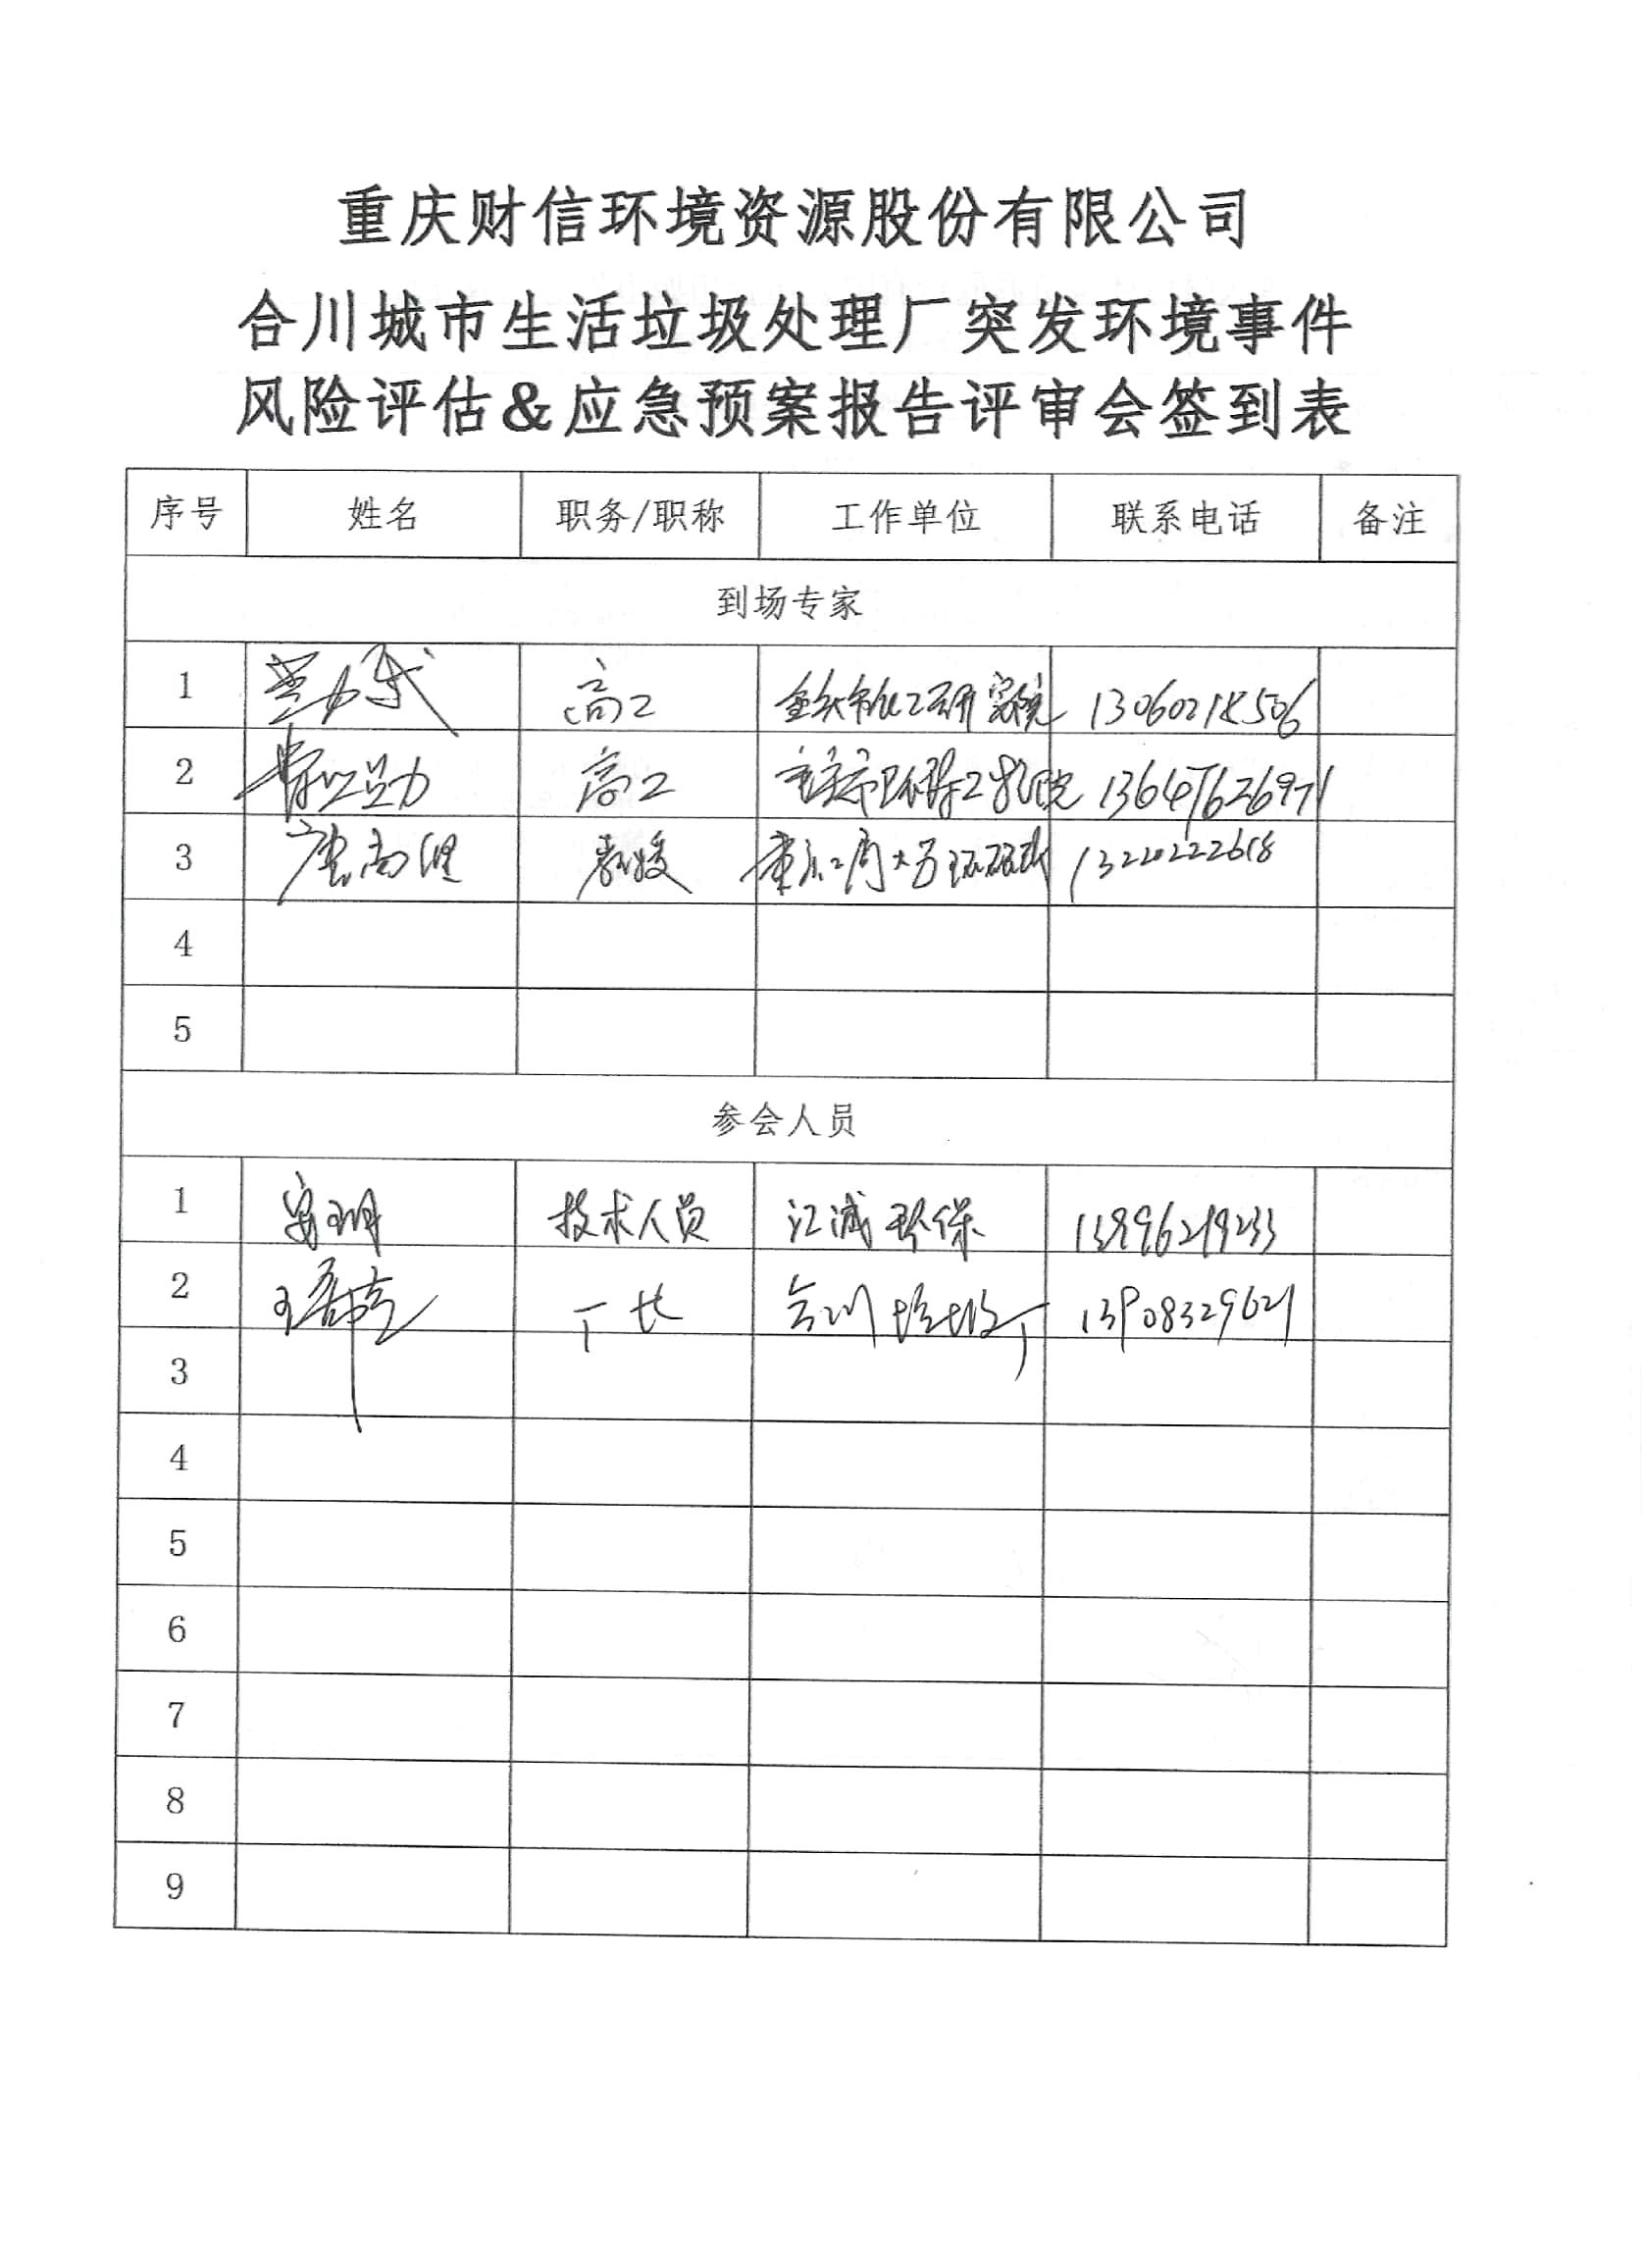 重庆财信环境资源股份有限公司
合川城市生活垃圾处理厂突发环境事件
风险评估&应急预案报告评审会签到表
序号 姓名 职务/职称 工作单位 联系电话 备注
到场专家
1 高工 重庆市化工研究院 13060218506
2 高工
3 唐尚 教授 13220222618
4
5
参会人员
1 技术人员 江诚环保 13996219233
2 王 厂长 合川垃圾厂 13908329621
3
4
5
6
7
8
9